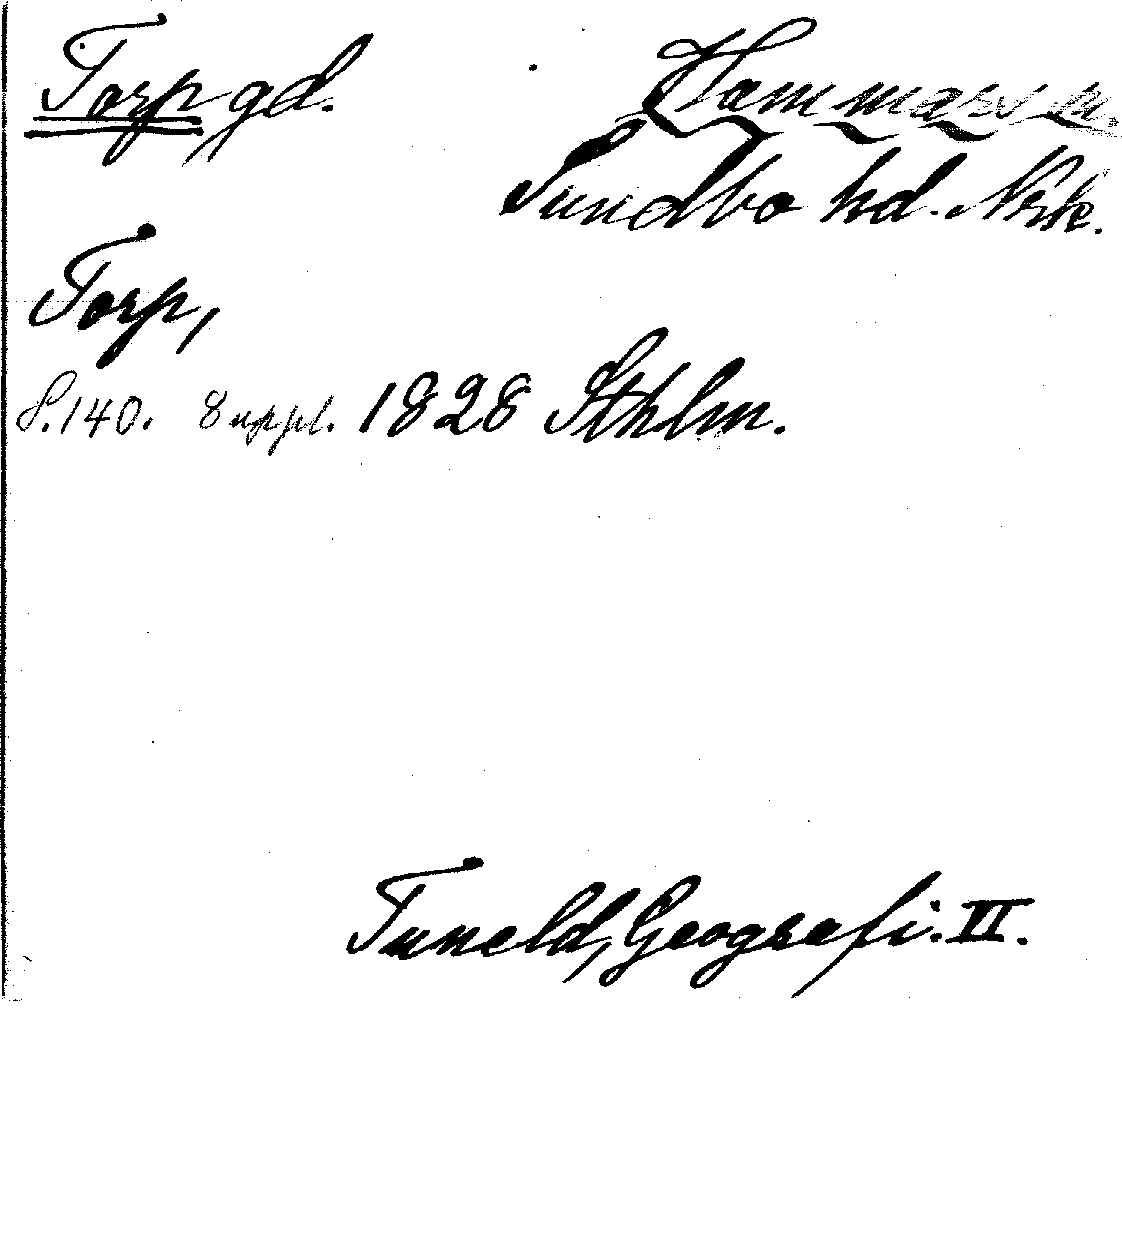 Torp gd. Hammars sn.
Sundbo hd. Nrke.
Torp,
S. 140. 8 uppl. 1828 Sthlm.
Tuneld, Geografi. II.